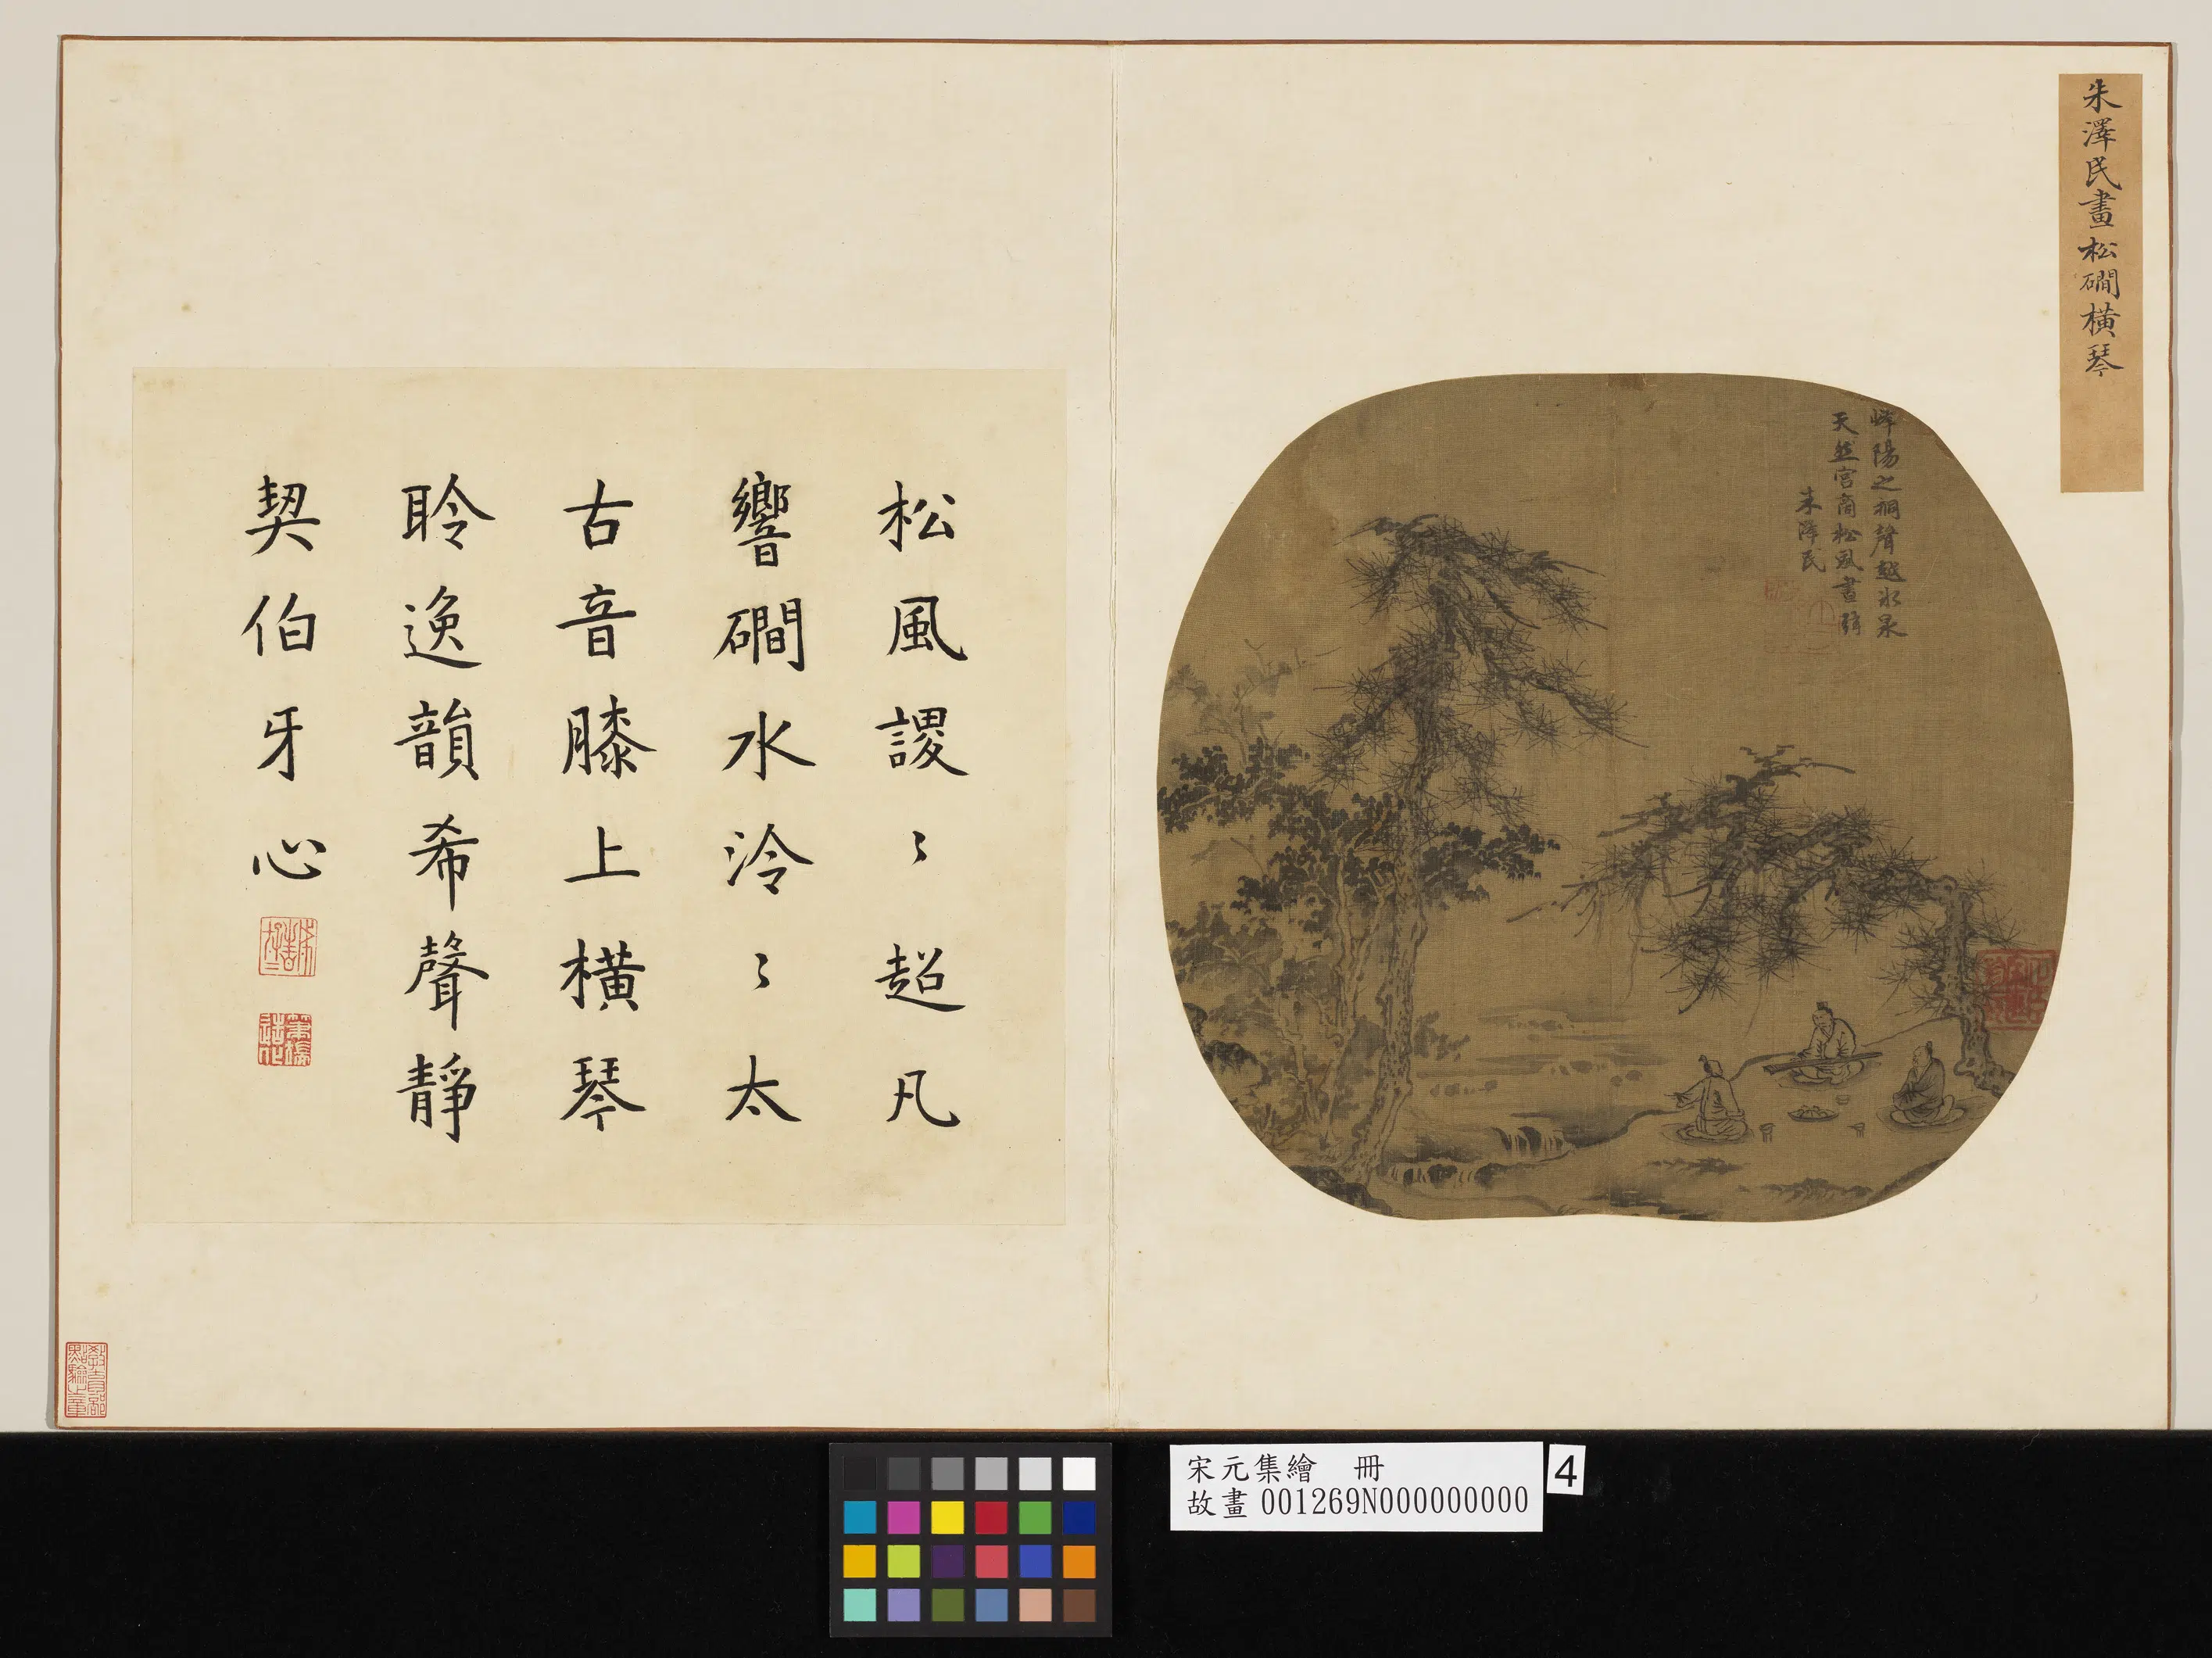 朱澤民畫松磵橫琴
嶧陽之桐聲越水泉
天然宮商松風畫絃
朱澤民
松風謖〻超凡
響磵水泠〻太
古音膝上橫琴
聆逸韻希聲靜
契伯牙心
教育部點驗之章
宋元集繪 冊
故畫 001269N000000000
4